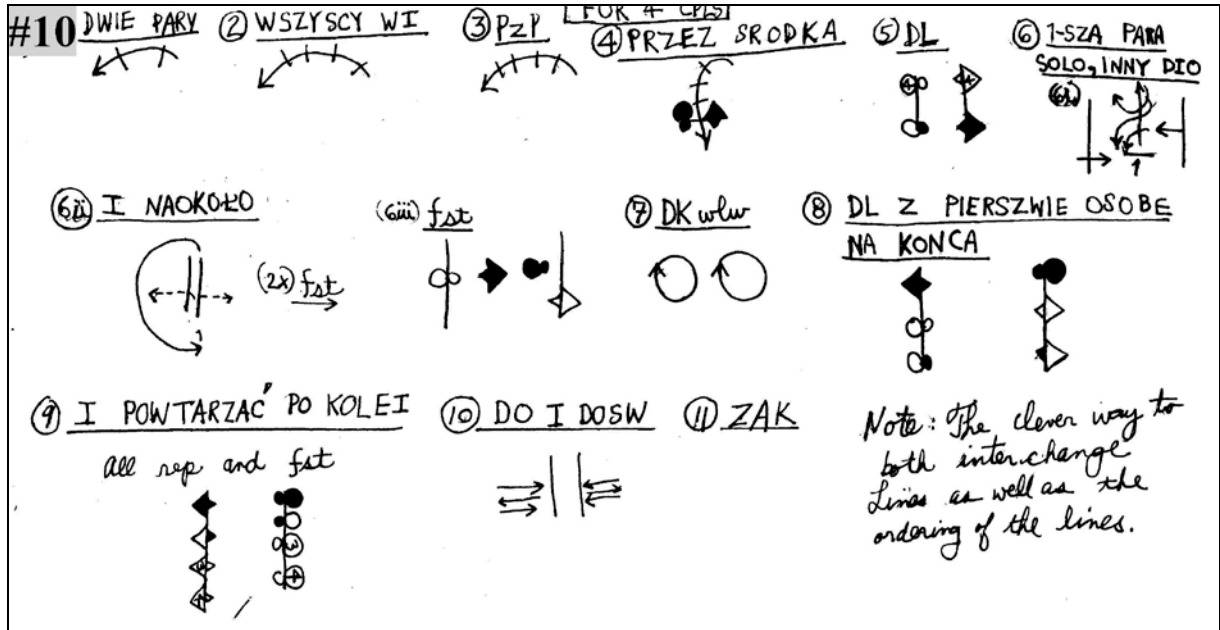 #10 DWIE PARY ② WSZYSCY WI ③ PzP [FOR 4 CPLS]
④ PRZEZ SRODKA ⑤ DL ⑥ 1-SZA PARA
SOLO, INNY DIO
(6i)
1
(6ii) I NAOKOŁO (6iii) fst ⑦ DK wlw ⑧ DL Z PIERSZWIE OSOBE
NA KONCA
(2x) fst
⑨ I POWTARZAĆ PO KOLEI ⑩ DO I DOSW ⑪ ZAK
all rep and fst
Note: The clever way to
both interchange
Lines as well as the
ordering of the lines.